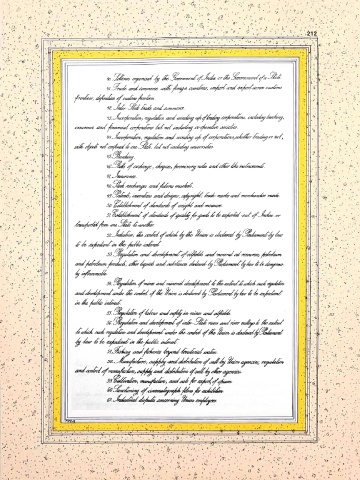 212
40. Lotteries organised by the Government of India or the Government of a State.
41. Trade and commerce with foreign countries; import and export across customs
frontiers; definition of customs frontiers.
42. Inter-State trade and commerce.
43. Incorporation, regulation and winding up of trading corporations, including banking,
insurance and financial corporations but not including co-operative societies.
44. Incorporation, regulation and winding up of corporations, whether trading or not,
with objects not confined to one State, but not including universities.
45. Banking.
46. Bills of exchange, cheques, promissory notes and other like instruments.
47. Insurance.
48. Stock exchanges and futures markets.
49. Patents, inventions and designs; copyright; trade-marks and merchandise marks.
50. Establishment of standards of weight and measure.
51. Establishment of standards of quality for goods to be exported out of India or
transported from one State to another.
52. Industries, the control of which by the Union is declared by Parliament by law
to be expedient in the public interest.
53. Regulation and development of oilfields and mineral oil resources; petroleum
and petroleum products; other liquids and substances declared by Parliament by law to be dangerously
inflammable.
54. Regulation of mines and mineral development to the extent to which such regulation
and development under the control of the Union is declared by Parliament by law to be expedient
in the public interest.
55. Regulation of labour and safety in mines and oilfields.
56. Regulation and development of inter-State rivers and river valleys to the extent
to which such regulation and development under the control of the Union is declared by Parliament
by law to be expedient in the public interest.
57. Fishing and fisheries beyond territorial waters.
58. Manufacture, supply and distribution of salt by Union agencies; regulation
and control of manufacture, supply and distribution of salt by other agencies.
59. Cultivation, manufacture, and sale for export, of opium.
60. Sanctioning of cinematograph films for exhibition.
61. Industrial disputes concerning Union employees.